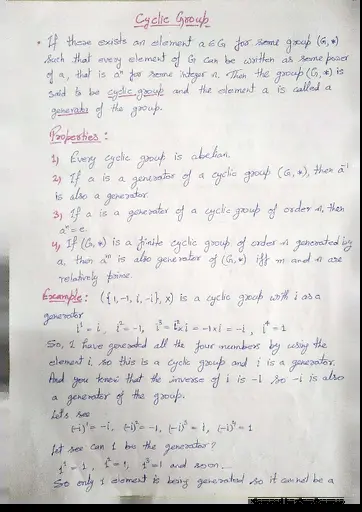 Cyclic Group
• If there exists an element a ∈ G for some group (G, *)
such that every element of G can be written as some power
of a, that is aⁿ for some integer n. Then the group (G, *) is
said to be cyclic group and the element a is called a
generator of the group.
Properties :
1) Every cyclic group is abelian.
2) If a is a generator of a cyclic group (G, *), then a⁻¹
is also a generator.
3) If a is a generator of a cyclic group of order n, then
aⁿ = e.
4) If (G, *) is a finite cyclic group of order n generated by
a, then aᵐ is also generator of (G, *) iff m and n are
relatively prime.
Example : ({1, -1, i, -i}, x) is a cyclic group with i as a
generator
i¹ = i, i² = -1, i³ = i² x i = -1 x i = -i, i⁴ = 1
So, I have generated all the four numbers by using the
element i. so this is a cyclic group and i is a generator.
And you know that the inverse of i is -i so -i is also
a generator of the group.
Let's see
(-i)¹ = -i, (-i)² = -1, (-i)³ = i, (-i)⁴ = 1
Let see can 1 be the generator?
1¹ = 1, 1² = 1, 1³ = 1 and so on....
So only 1 element is being generated so it cannot be a